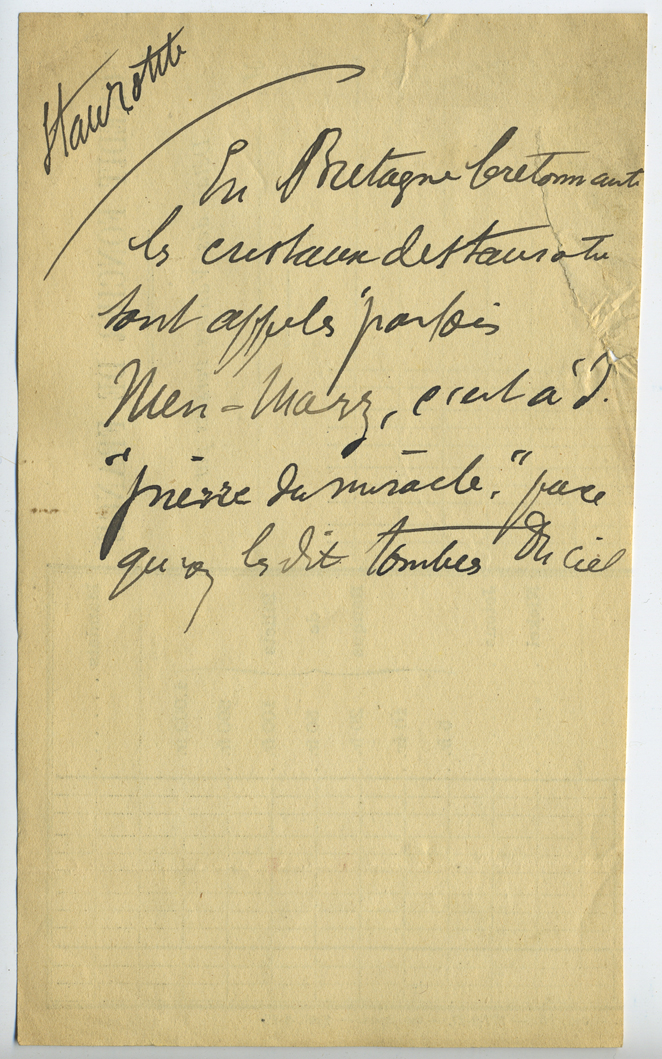 Staurotite
En Bretagne bretonnante
les cristaux de staurotite
sont appelés parfois
Men-Marz, c'est à d.
"pierre du miracle," parce
qu'on les dit tombés du ciel